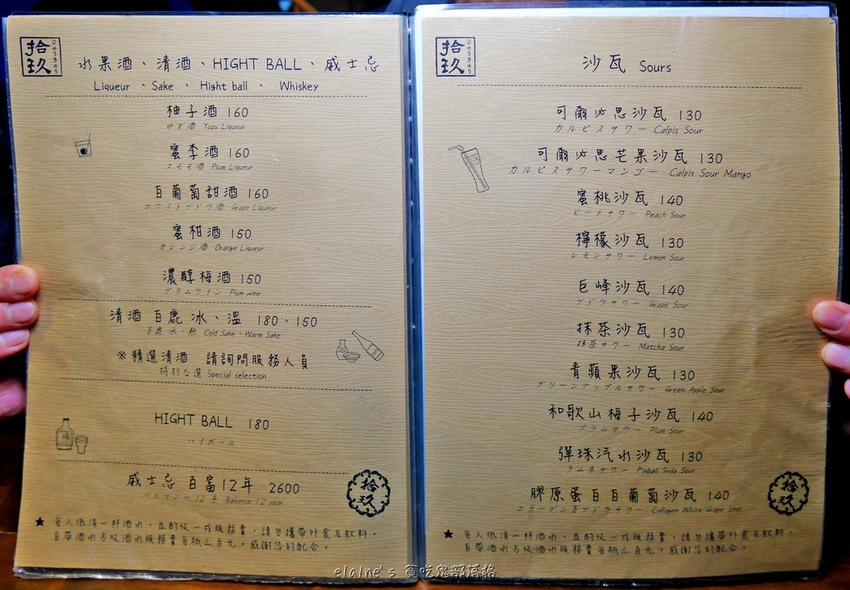 拾玖
水果酒、清酒、HIGHT BALL、威士忌
Liqueur、Sake、Hight ball、Whiskey
柚子酒 160
ゆず酒 Yuzu Liqueur
蜜李酒 160
スモモ酒 Plum Liqueur
白葡萄甜酒 160
ホワイトブドウ酒 Grape Liqueur
蜜柑酒 150
オレンジ酒 Orange Liqueur
濃醇梅酒 150
プラムワイン Plum wine
清酒 白鹿 冰、溫 180、150
白鹿 冰、熱 Cold Sake、Warm Sake
※精選清酒 請詢問服務人員
特別な選 Special selection
HIGHT BALL 180
ハイボール
威士忌 百富12年 2600
バルベニー12年 Balvenie 12 year
拾玖
★ 每人低消一杯酒水，並酌收一成服務費，請勿攜帶外食及飲料，
自帶酒水另收酒水服務費每瓶三百元。感謝您的配合。
拾玖
沙瓦 Sours
可爾必思沙瓦 130
カルピスサワー Calpis Sour
可爾必思芒果沙瓦 130
カルピスサワーマンゴー Calpis Sour Mango
蜜桃沙瓦 140
ピーチサワー Peach Sour
檸檬沙瓦 130
レモンサワー Lemon Sour
巨峰沙瓦 140
ブドウサワー Grape Sour
抹茶沙瓦 130
抹茶サワー Matcha Sour
青蘋果沙瓦 130
グリーンアップルサワー Green Apple Sour
和歌山梅子沙瓦 140
プラムサワー Plum Sour
彈珠汽水沙瓦 130
ラムネサワー Pinball Soda Sour
膠原蛋白白葡萄沙瓦 140
コラーゲン白ブドウサワー Collagen White Grape Sour
拾玖
★ 每人低消一杯酒水，並酌收一成服務費，請勿攜帶外食及飲料，
自帶酒水另收酒水服務費每瓶三百元。感謝您的配合。
elaine's 貪吃鬼部落格